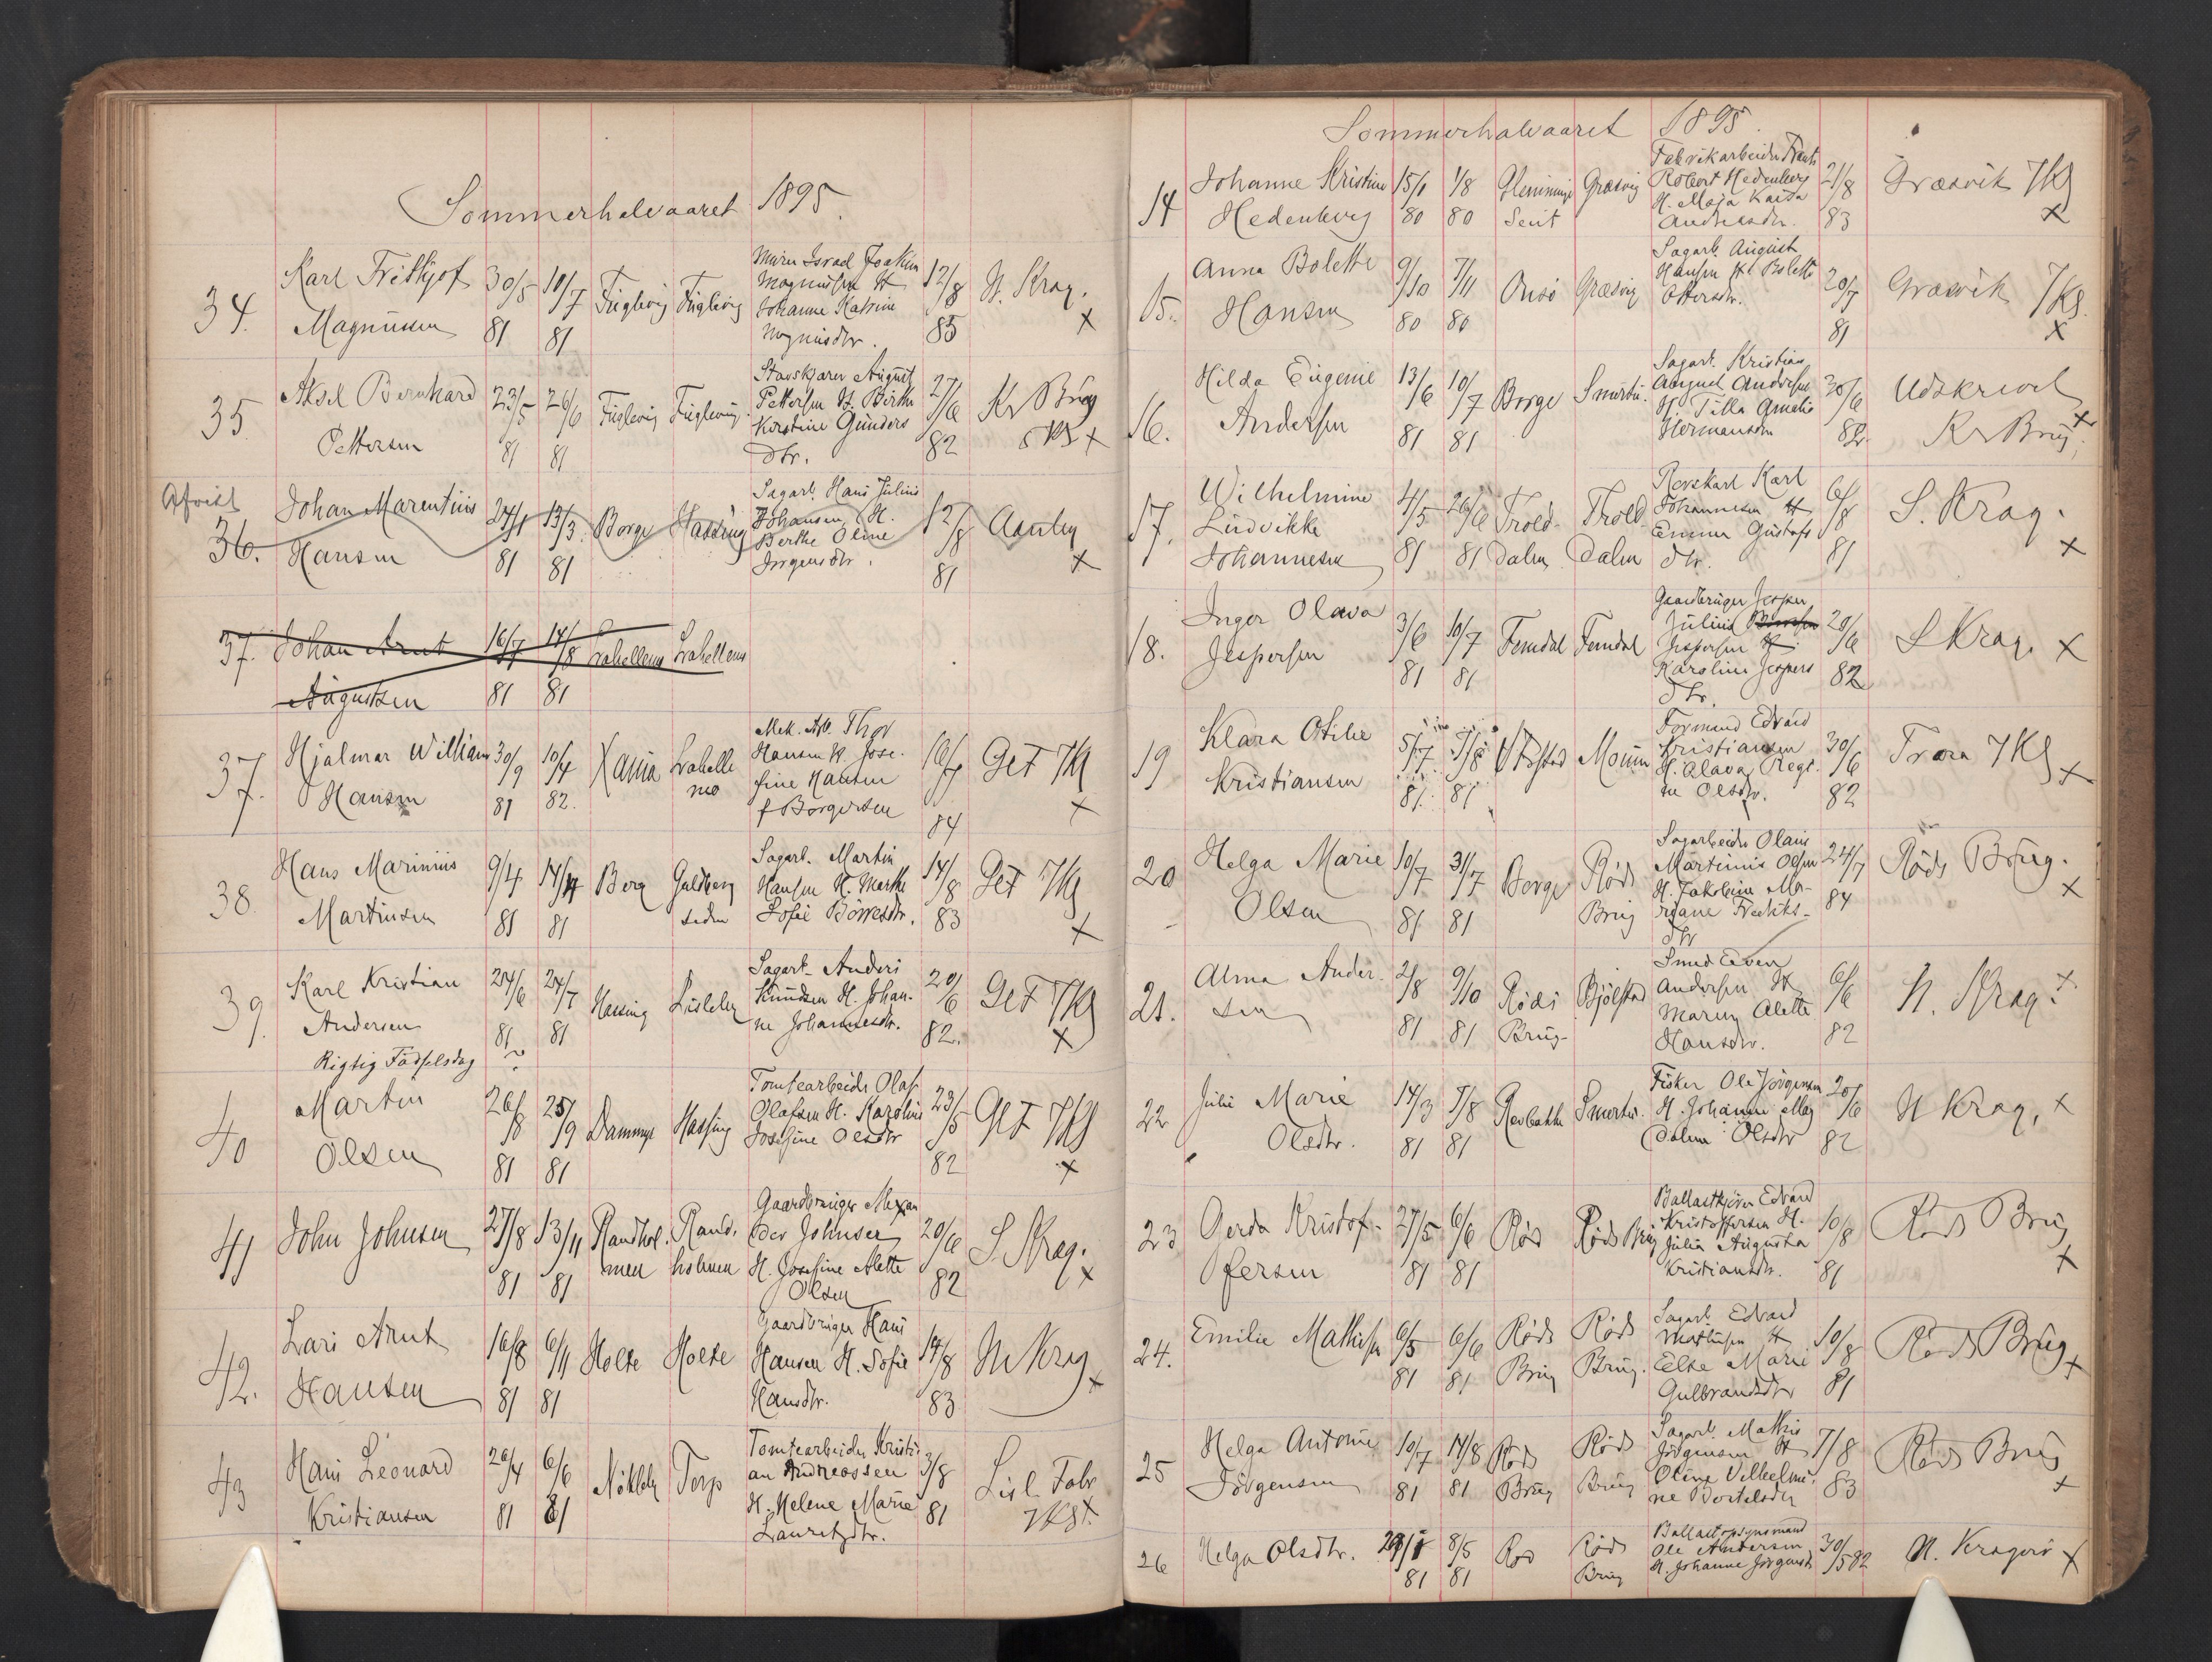 Sommerhalvaaret 1895.
34. Karl Frithjof Magnussen 30/5 81 10/7 81 Fuglevig Fuglevig
Murer Israel Joakim
Magnussen H
Johanne Katrine
Magnusdtr.
12/8 85 N. Krag. X
35 Aksel Bernhard Pettersen 23/5 81 26/6 81 Fuglevig Fuglevig.
Stavskjærer August
Pettersen H. Birthe
Kirstine Gunders
dtr.
27/6 82 Kr Brug X
Afvist
36. Johan Marentius Hansen 24/1 81 13/3 81 Borge Hassing
Sagarb. Hans Julius
Johansen H.
Berthe Oline
Jørgensdtr.
12/8 81 X
37. Johan Arnt Augustsen 16/7 81 14/8 81
37. Hjalmar William Hansen 30/9 81 10/4 82. Xania
Mek. Arb. Thor
Hansen H. Jose-
fine Hansen
f Borgersen
16/7 84 Get 7Kl X
38. Hans Marinius Martinsen 9/4 81 Berg Guldberg siden
Sagarb. Martin
Hansen H. Marthe
Sofie Børresdtr.
14/8 83 Get 7Kl X
39. Karl Kristian Andersen 24/6 81 24/7 81 Hassing Lisleby
Rigtig Fødselsdag ?
Sagarb. Anders
Knudsen H. Johan-
ne Johannesdtr.
20/6 82. Get 7Kl X
40 Martin Olsen 26/8 81 25/9 81 Dammyr Hassing
Tomtearbeider Olaf
Olafsen H. Karoline
Josefine Olsdtr
23/5 82 Get 7Kl X
41 John Johnsen 27/8 81 13/11 81 Randhol- men Rand- holmen
Gaardbruger Alexan
der Johnsen
H. Josefine Alette
Olsen
20/6 82 S. Krag. X
42. Lars Arnt Hansen 16/8 81 6/11 81 Holte Holte
Gaardbruger Hans
Hansen H. Sofie
Hansdtr.
14/8 83 N Krag X
43 Hans Leonard Kristiansen 26/4 81 6/6 81 Nøkleby Torp
Tomtearbeider Kristi-
an Andreassen
H. Helene Marie
Lauritzdtr.
3/8 81 Lisl. Fabr
Sommerhalvaaret 1895.
14 Johanne Kristine Hedenberg 15/1 80 1/8 80 Glemminge Græsvig
Fabrikarbeider Frants
Robert Hedenberg
H. Maja Kaisa
Andreasdtr.
21/8 83 Græsvik 7Kl X
15. Anna Bolette Hansen 9/10 80 7/11 80 Onsø Græsvig
Sagarb. August
Hansen H. Bolette
Ottersdtr.
20/7 81 Græsvik 7Kl. X
16. Hilda Eugenie Andersen 13/6 81 10/7 81 Borge Smertu.
Sagarb. Kristian
August Andersen
H. Tilla Amalie
Hermansen
30/6 82. Udskrevet Kr Brug. X
17. Wilhelmine Ludvikke Johannesen 4/5 81 26/6 81 Trold- dalen Trold- dalen
Karl
Johannesen H
Emma Gustafs
dtr.
6/8 81 S. Krag. X
18. Inger Olava Jespersen 3/6 81 10/7 81 Femdal Femdal
Gaardbruger Jesper
Julius
Jespersen H.
Karoline Jespers
dtr.
20/6 82 S Krag. X
19 Klara Otilie Kristiansen 5/7 81. 7/8 81 Moum
Formand Edvard
Kristiansen
H. Olava Regi-
ne Olsdtr.
30/6 82 Trara 7Kl X
20 Helga Marie Olsen 10/7 81 31/7 81 Borge Røds Brug
Sagarbeider Olaus
Martinus Olsen
H. Jakobine Ma-
riane Fredriks-
dtr
24/7 84 Røds Brug. X
21. Alma Ander- sen 2/8 81 9/10 81 Røds Brug- Bjølstad
Smed Even
Andersen H
Maren Alette
Hansdtr.
6/6 82 N. Krag. X
22 Julie Marie Olsdtr. 14/3 81 7/8 81 Smertu.
Fisker Ole Jørgensen
H. Johanne Mag
dalene Olsdtr
20/6 82 N Krag, X
23 Gerda Kristof- fersen 27/5 81 6/6 81 Rød Røds Brug
Ballastkjører Edvard
Kristoffersen H.
Julia Augusta
Kristiansdtr.
10/8 81 Røds Brug X
24. Emilie Mathisen 6/5 81 6/6 81 Røds Brug Røds Brug.
Sagarb. Edvard
Mathisen H
Else Marie
Gulbrandsdtr
10/8 81 Røds Brug X
25 Helga Antonie Jørgensen 10/7 81 14/8 81 Røds Brug Røds Brug
Sagarb. Mathis
Jørgensen H
Oline Vilhelmi-
ne Bertelsdtr
7/8 83 Røds Brug X
26 Helga Olsdtr. 81 8/5 81 Rød Røds Brug
Ballastopsynsmand
Ole Andersen
H. Johanne Jørgensdtr
30/5 82 N. Kragerø X